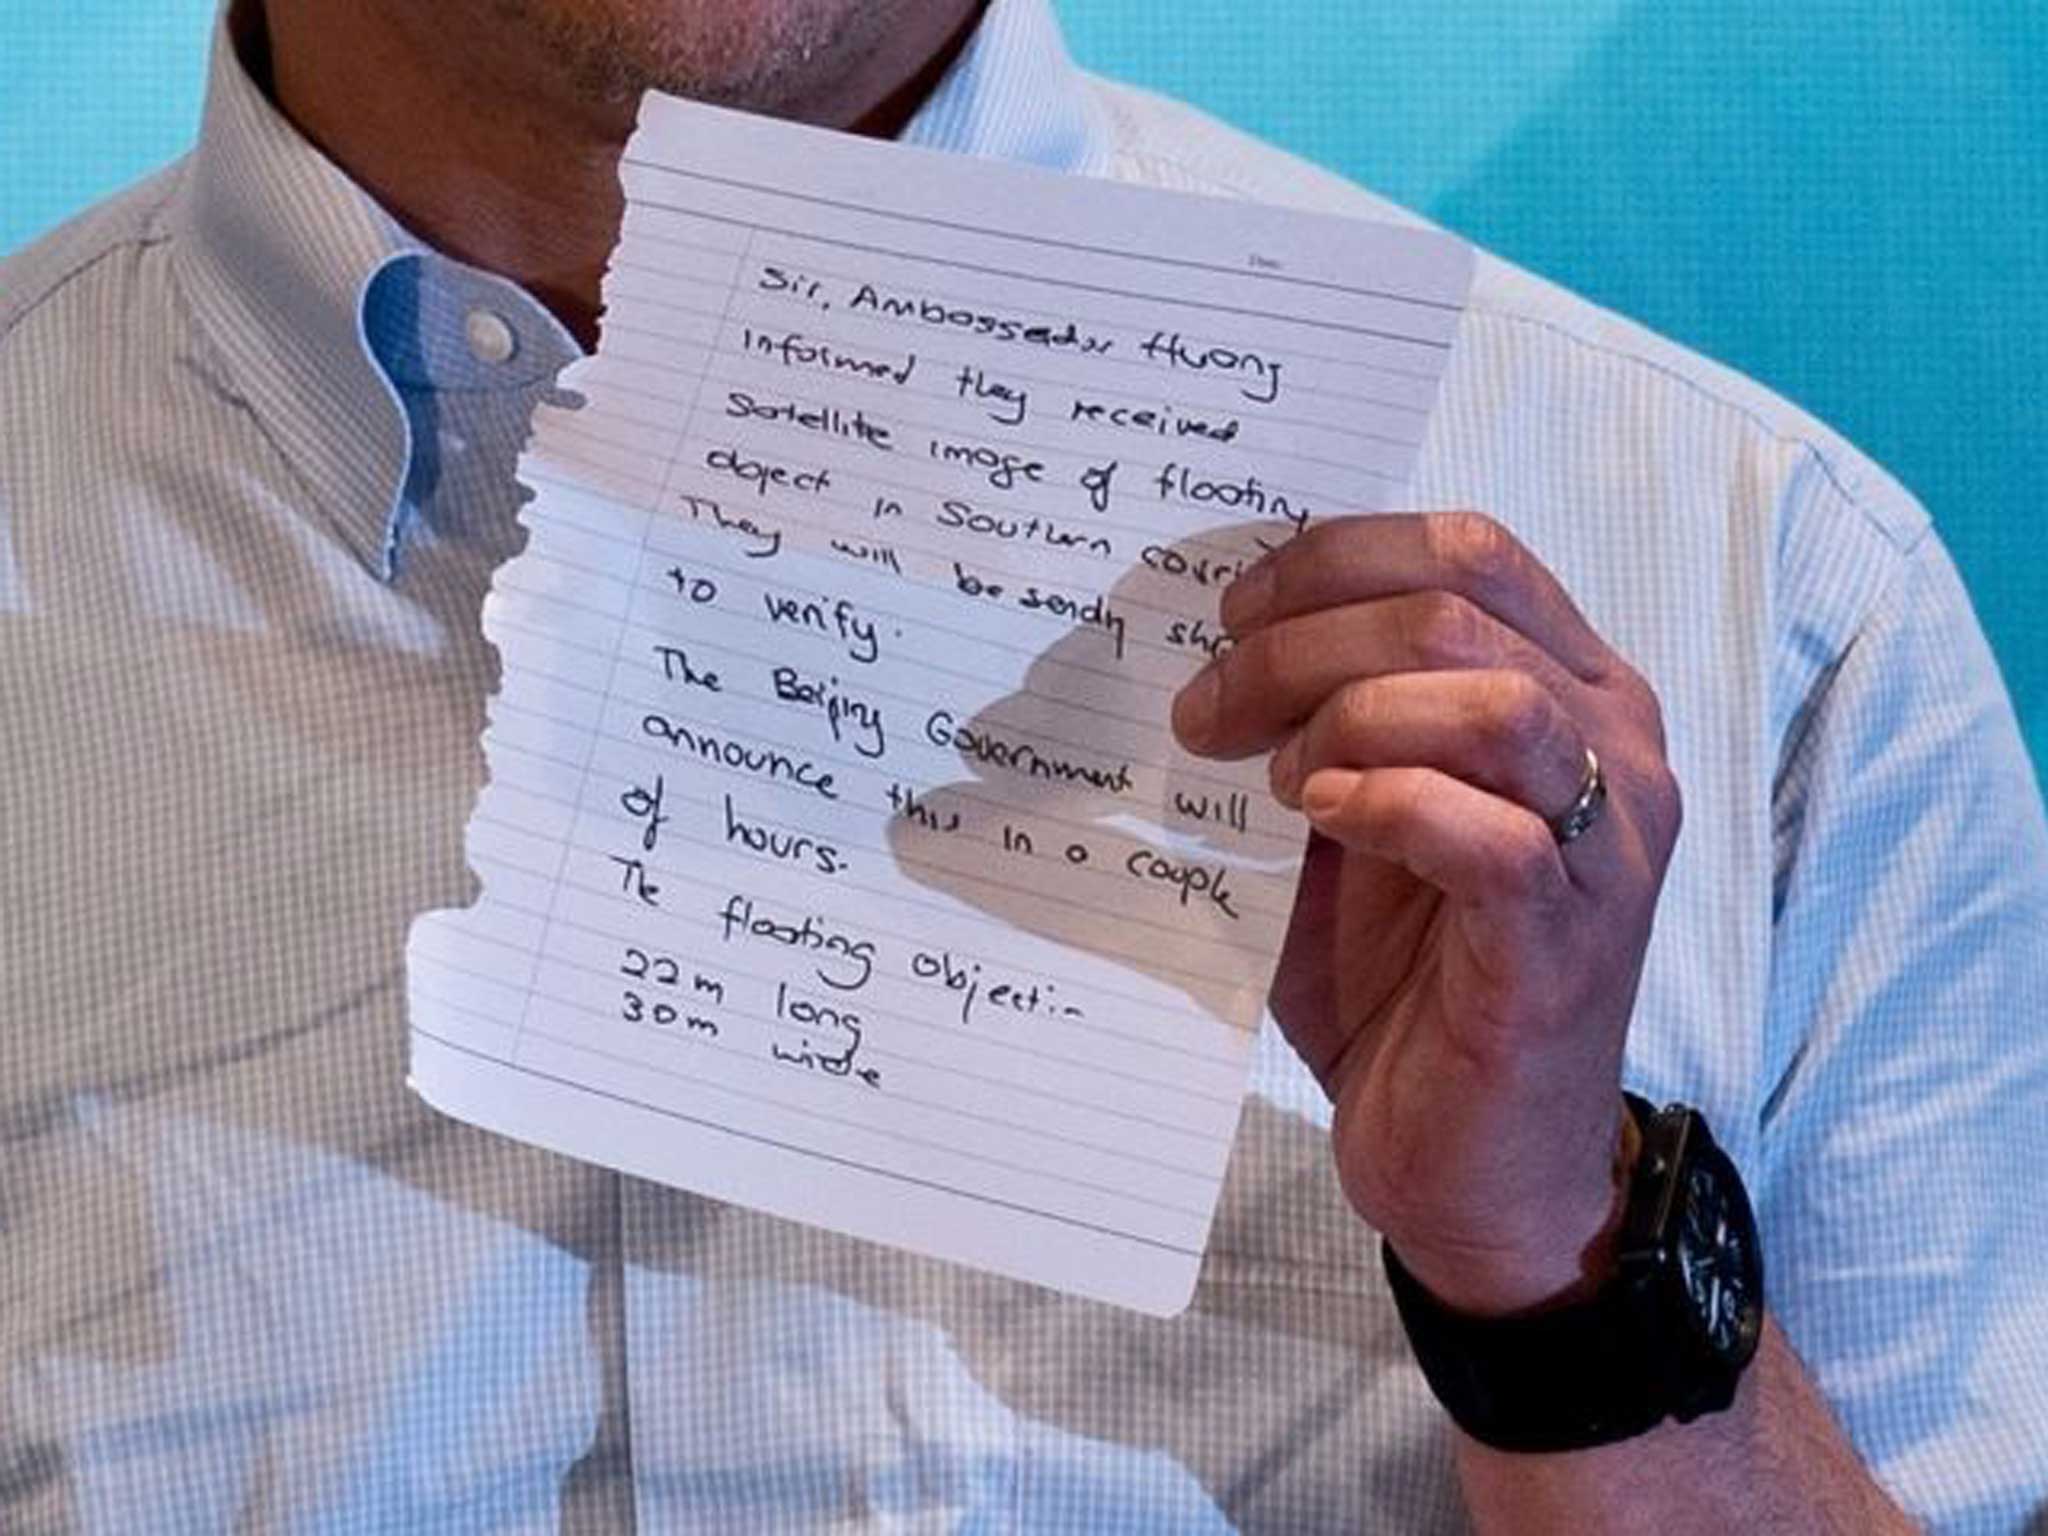 Sir, Ambassador Huang
informed they received
Satellite image of floating
object in Southern
They will be sending
to verify.
The Beijing Government will
announce this in a couple
of hours.
The floating object:-
22m long
30m wide